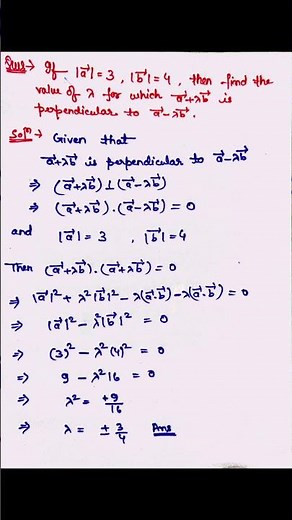 Ques→ If |a⃗| = 3 , |b⃗| = 4 , then find the
value of λ for which a⃗+λb⃗ is
perpendicular to a⃗-λb⃗ .
Solⁿ→ Given that
a⃗+λb⃗ is perpendicular to a⃗-λb⃗
⇒ (a⃗+λb⃗) ⊥ (a⃗-λb⃗)
⇒ (a⃗+λb⃗) . (a⃗-λb⃗) = 0
and |a⃗| = 3 , |b⃗| = 4
Then (a⃗+λb⃗) . (a⃗+λb⃗) = 0
⇒ |a⃗|² + λ²|b⃗|² - λ(a⃗.b⃗) - λ(a⃗.b⃗) = 0
⇒ |a⃗|² - λ²|b⃗|² = 0
⇒ (3)² - λ²(4)² = 0
⇒ 9 - λ²16 = 0
⇒ λ² = +9/16
⇒ λ = ± 3/4 Ans